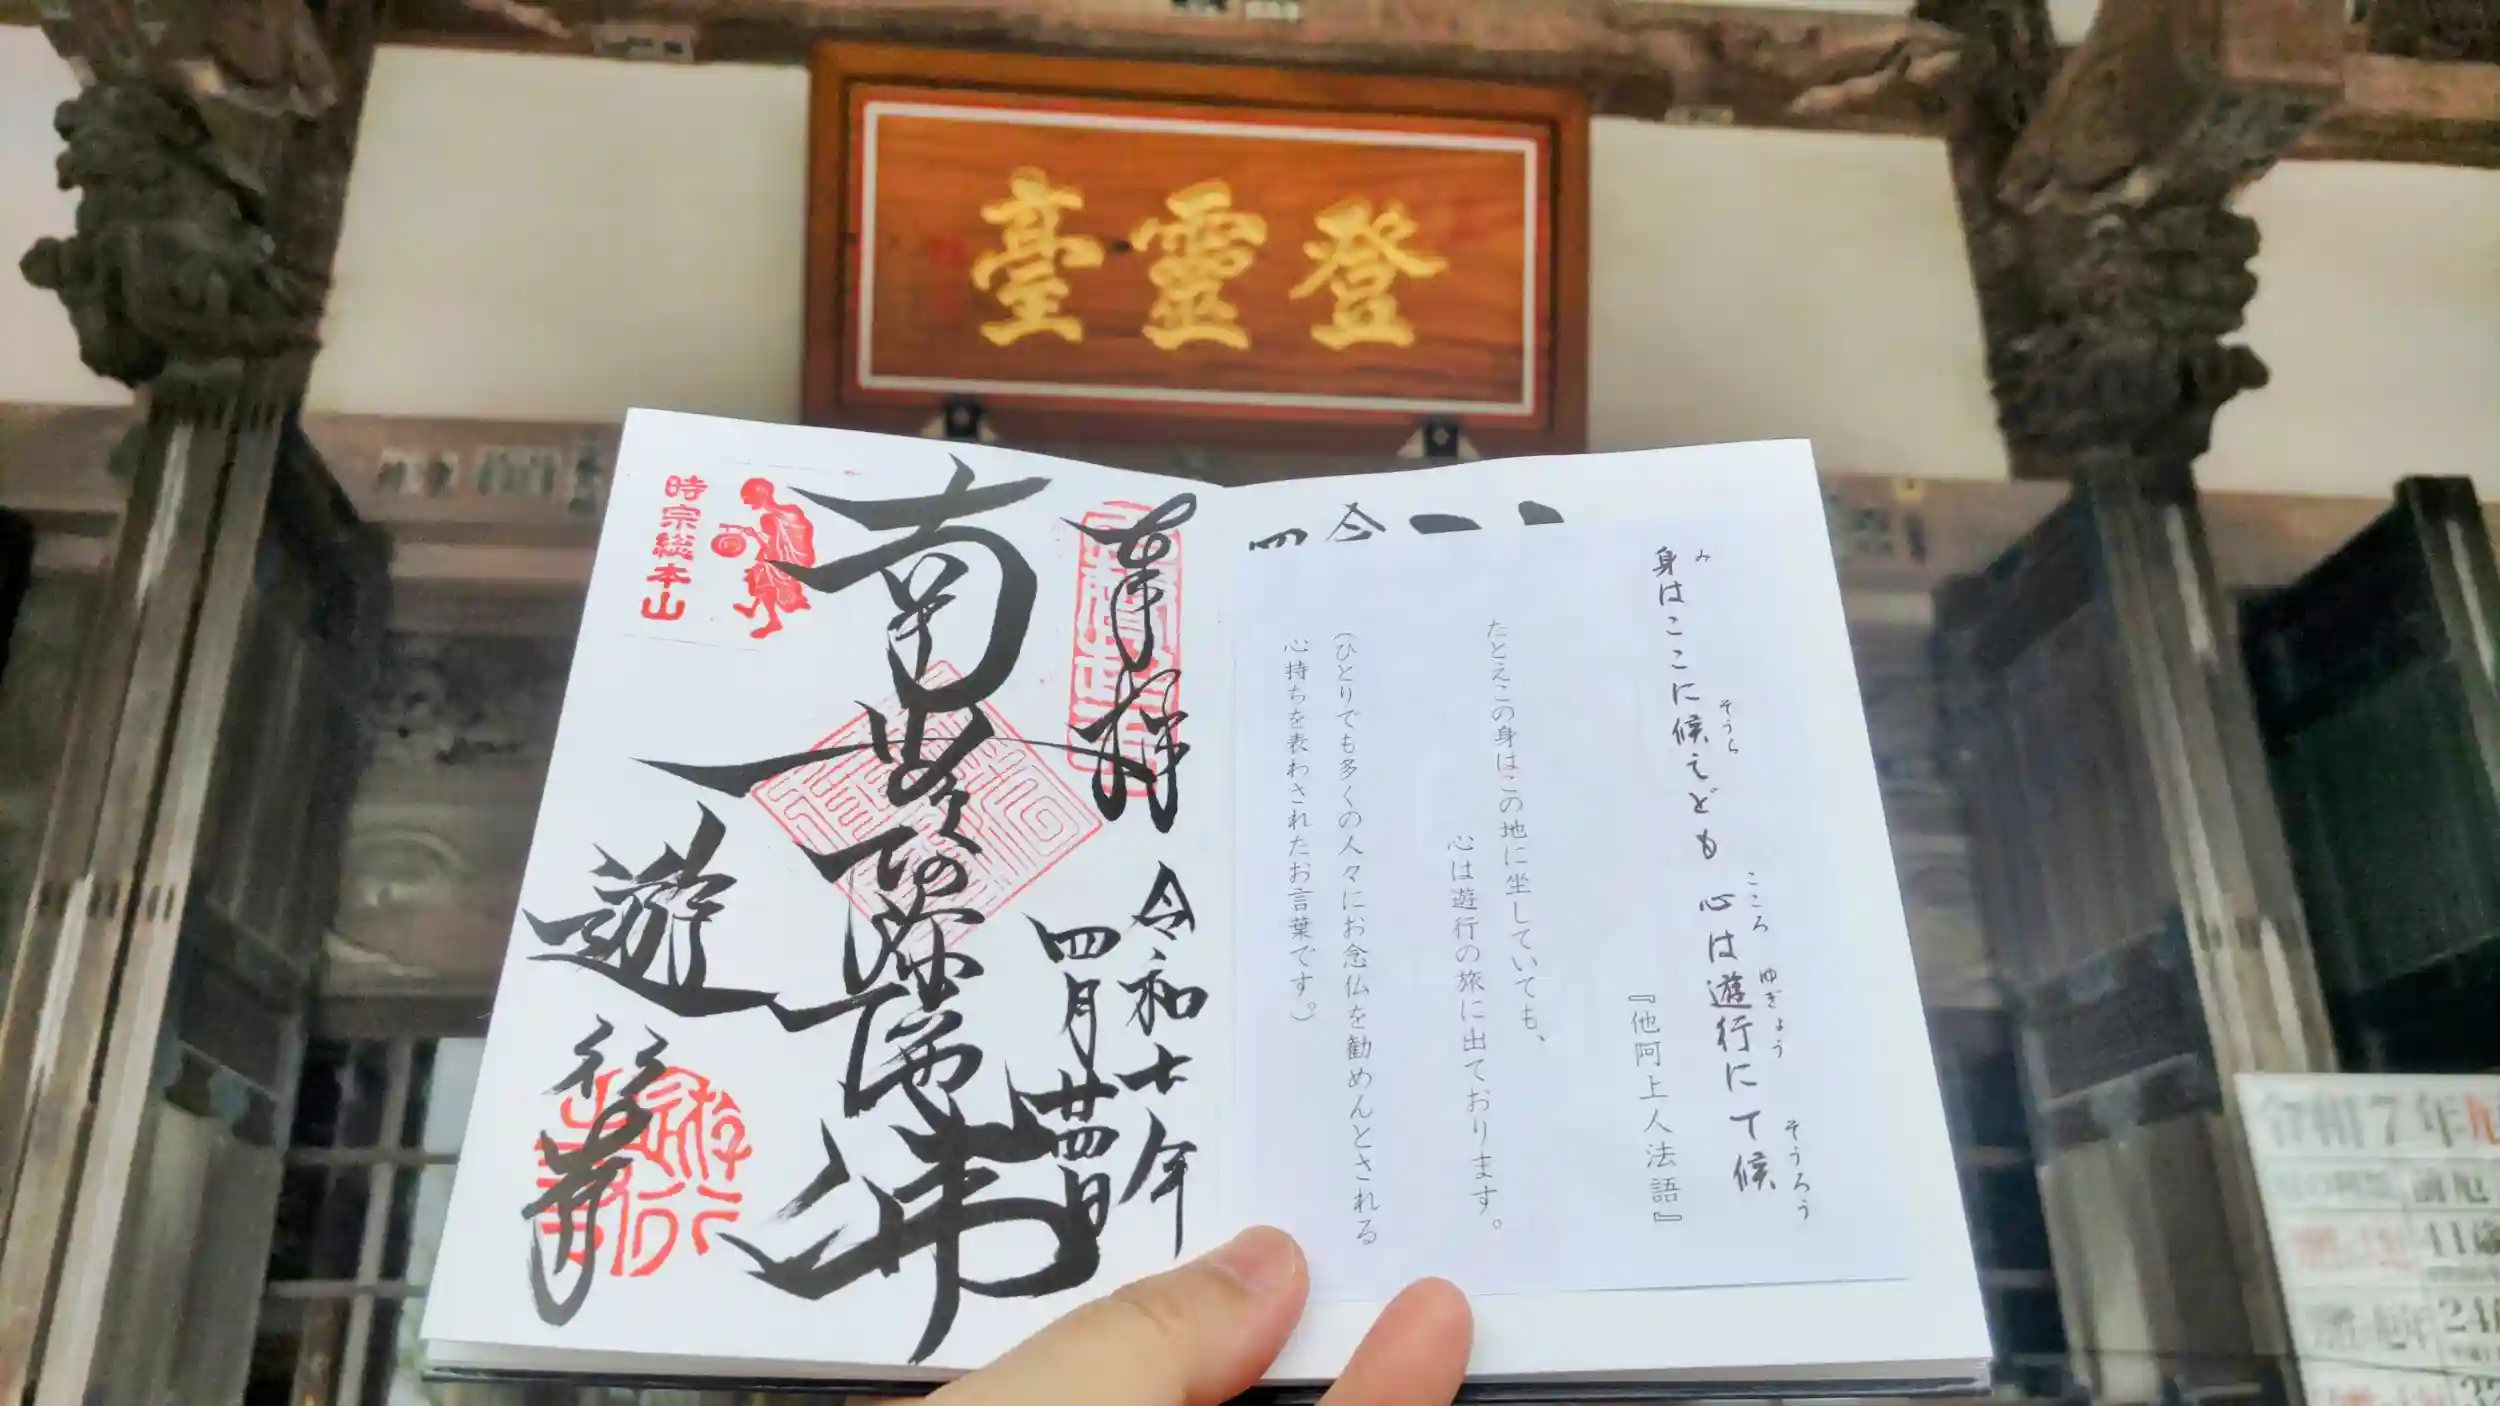 登靈臺
身はここに候えども 心は遊行にて候
み
そうら
こころ
ゆぎょう
そうろう
『他阿上人法語』
たとえこの身はこの地に坐していても、
心は遊行の旅に出ております。
(ひとりでも多くの人々にお念仏を勧めんとされる
心持ちを表わされたお言葉です。)
奉拝
令和七年
四月廿四日
南無阿弥陀佛
時宗総本山
遊行寺
令和7年